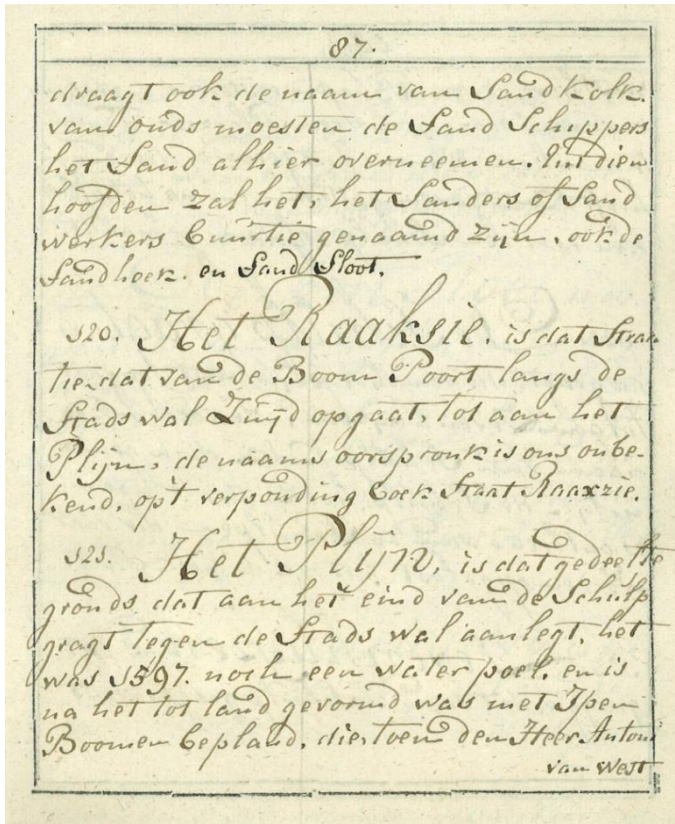 87.
draagt ook de naam van Sandkolk.
van ouds moesten de Sand Schippers
het Sand alhier overneemen. Uit dien
hoofden zal het, het Sanders of Sand
werkers buurtie genaamd zijn, ook de
Sandhoek. en Sand Sloot.
120. Het Raaksie. is dat Straa
tie, dat van de Boom Poort langs de
Stads wal Zuijd opgaat, tot aan het
Plijn, de naams oorspronk is ons onbe-
kend, op't verponding boek staat Raaxzie.
121. Het Plijn, is dat gedeelte
gronds, dat aan het eind van de Schulp
gragt tegen de Stads wal aanlegt, het
was 1597. noch een water poel, en is
na het tot land gevormd was met Ipen
Boomen bepland, die toen den Heer Antoni
van West